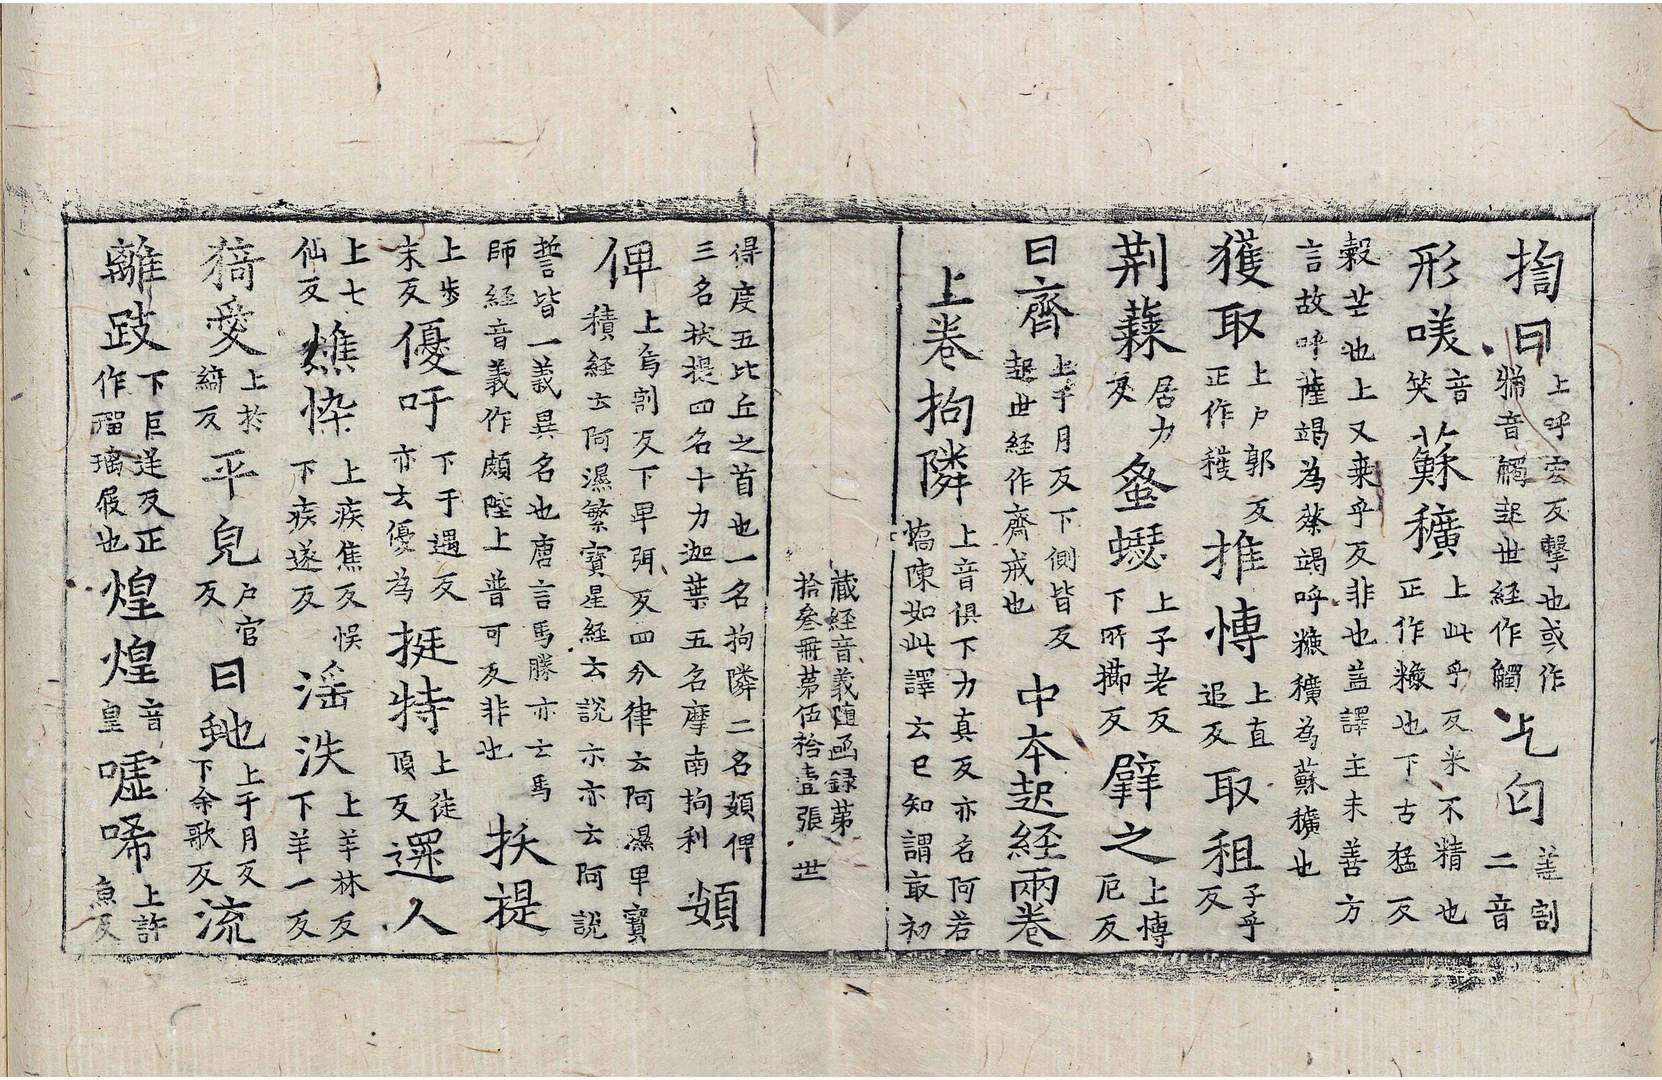 揈曰上呼宏反擊也或作音觸起世經作觸匃蓋割二音
形㗛音笑蘇穬上此乎反米不精也正作䊯也下古猛反
穀芒也上又桒乎反非也盖譯主未善方
言故呼薩竭為蔡竭呼䊯穬為蘇穬也
獲取上戶郭反正作穫推愽上直追反取租子乎反
荆蕀居力反上子老反下所擳反擘之上博厄反
曰齊上于月反下側皆反起世經作齊戒也中本起經兩卷
上卷拘隣上音俱下力真反亦名阿若憍陳如此譯云已知謂㝡初
藏經音義隨函録苐
拾叁冊苐伍拾壹張 世
得度五比丘之首也一名拘隣二名頞俾
三名拔提四名十力迦葉五名摩南拘利頞
俾上烏割反下卑弭反四分律云阿濕卑寳
積經云阿濕繁寳星經云說示亦云阿說
誓皆一義異名也唐言馬勝亦云馬
師經音義作頗陛上普可反非也拔提
上步末反優吁下于遇反亦云優為挺特上徒頂反選人
上七仙反憔悴上疾焦反悮下疾遂反滛泆上羊林反下羊一反
猗愛上於綺反平皃戶官反曰虵上于月反下余歌反流
離跂下巨逆反正作瑠璃屐也煌煌音皇嘘唏上許魚反